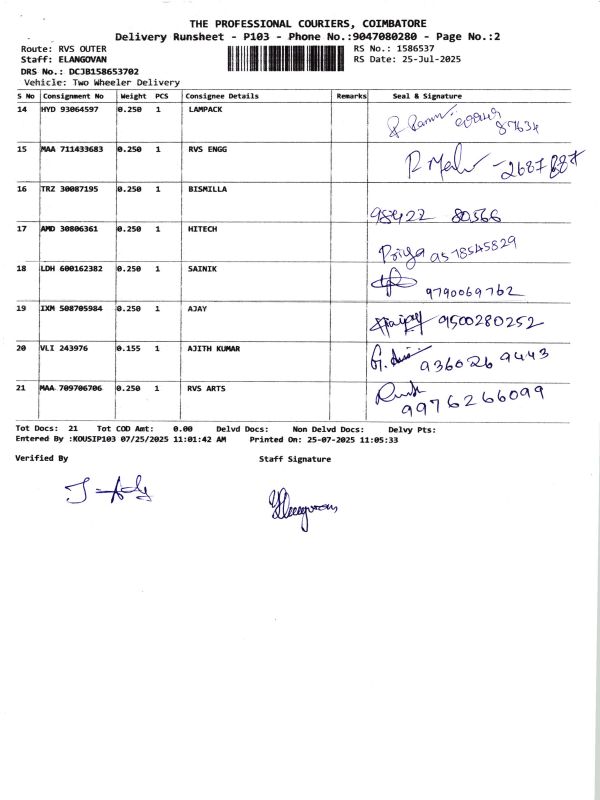 THE PROFESSIONAL COURIERS, COIMBATORE
Delivery Runsheet - P103 - Phone No.:9047080280 - Page No.:2
Route: RVS OUTER
RS No.: 1586537
Staff: ELANGOVAN
RS Date: 25-Jul-2025
DRS No.: DCJB158653702
Vehicle: Two Wheeler Delivery
S No Consignment No Weight PCS Consignee Details Remarks Seal & Signature
14 HYD 93064597 0.250 1 LAMPACK
87634
15 MAA 711433683 0.250 1 RVS ENGG
16 TRZ 30087195 0.250 1 BISMILLA
98422 80566
17 AMD 30806361 0.250 1 HITECH
Priya 9578545829
18 LDH 600162382 0.250 1 SAINIK
9790069762
19 IXM 508705984 0.250 1 AJAY
9500280252
20 VLI 243976 0.155 1 AJITH KUMAR
936026 9443
21 MAA 709706706 0.250 1 RVS ARTS
9976266099
Tot Docs: 21 Tot COD Amt: 0.00 Delvd Docs: Non Delvd Docs: Delvy Pts:
Entered By :KOUSIP103 07/25/2025 11:01:42 AM Printed On: 25-07-2025 11:05:33
Verified By Staff Signature